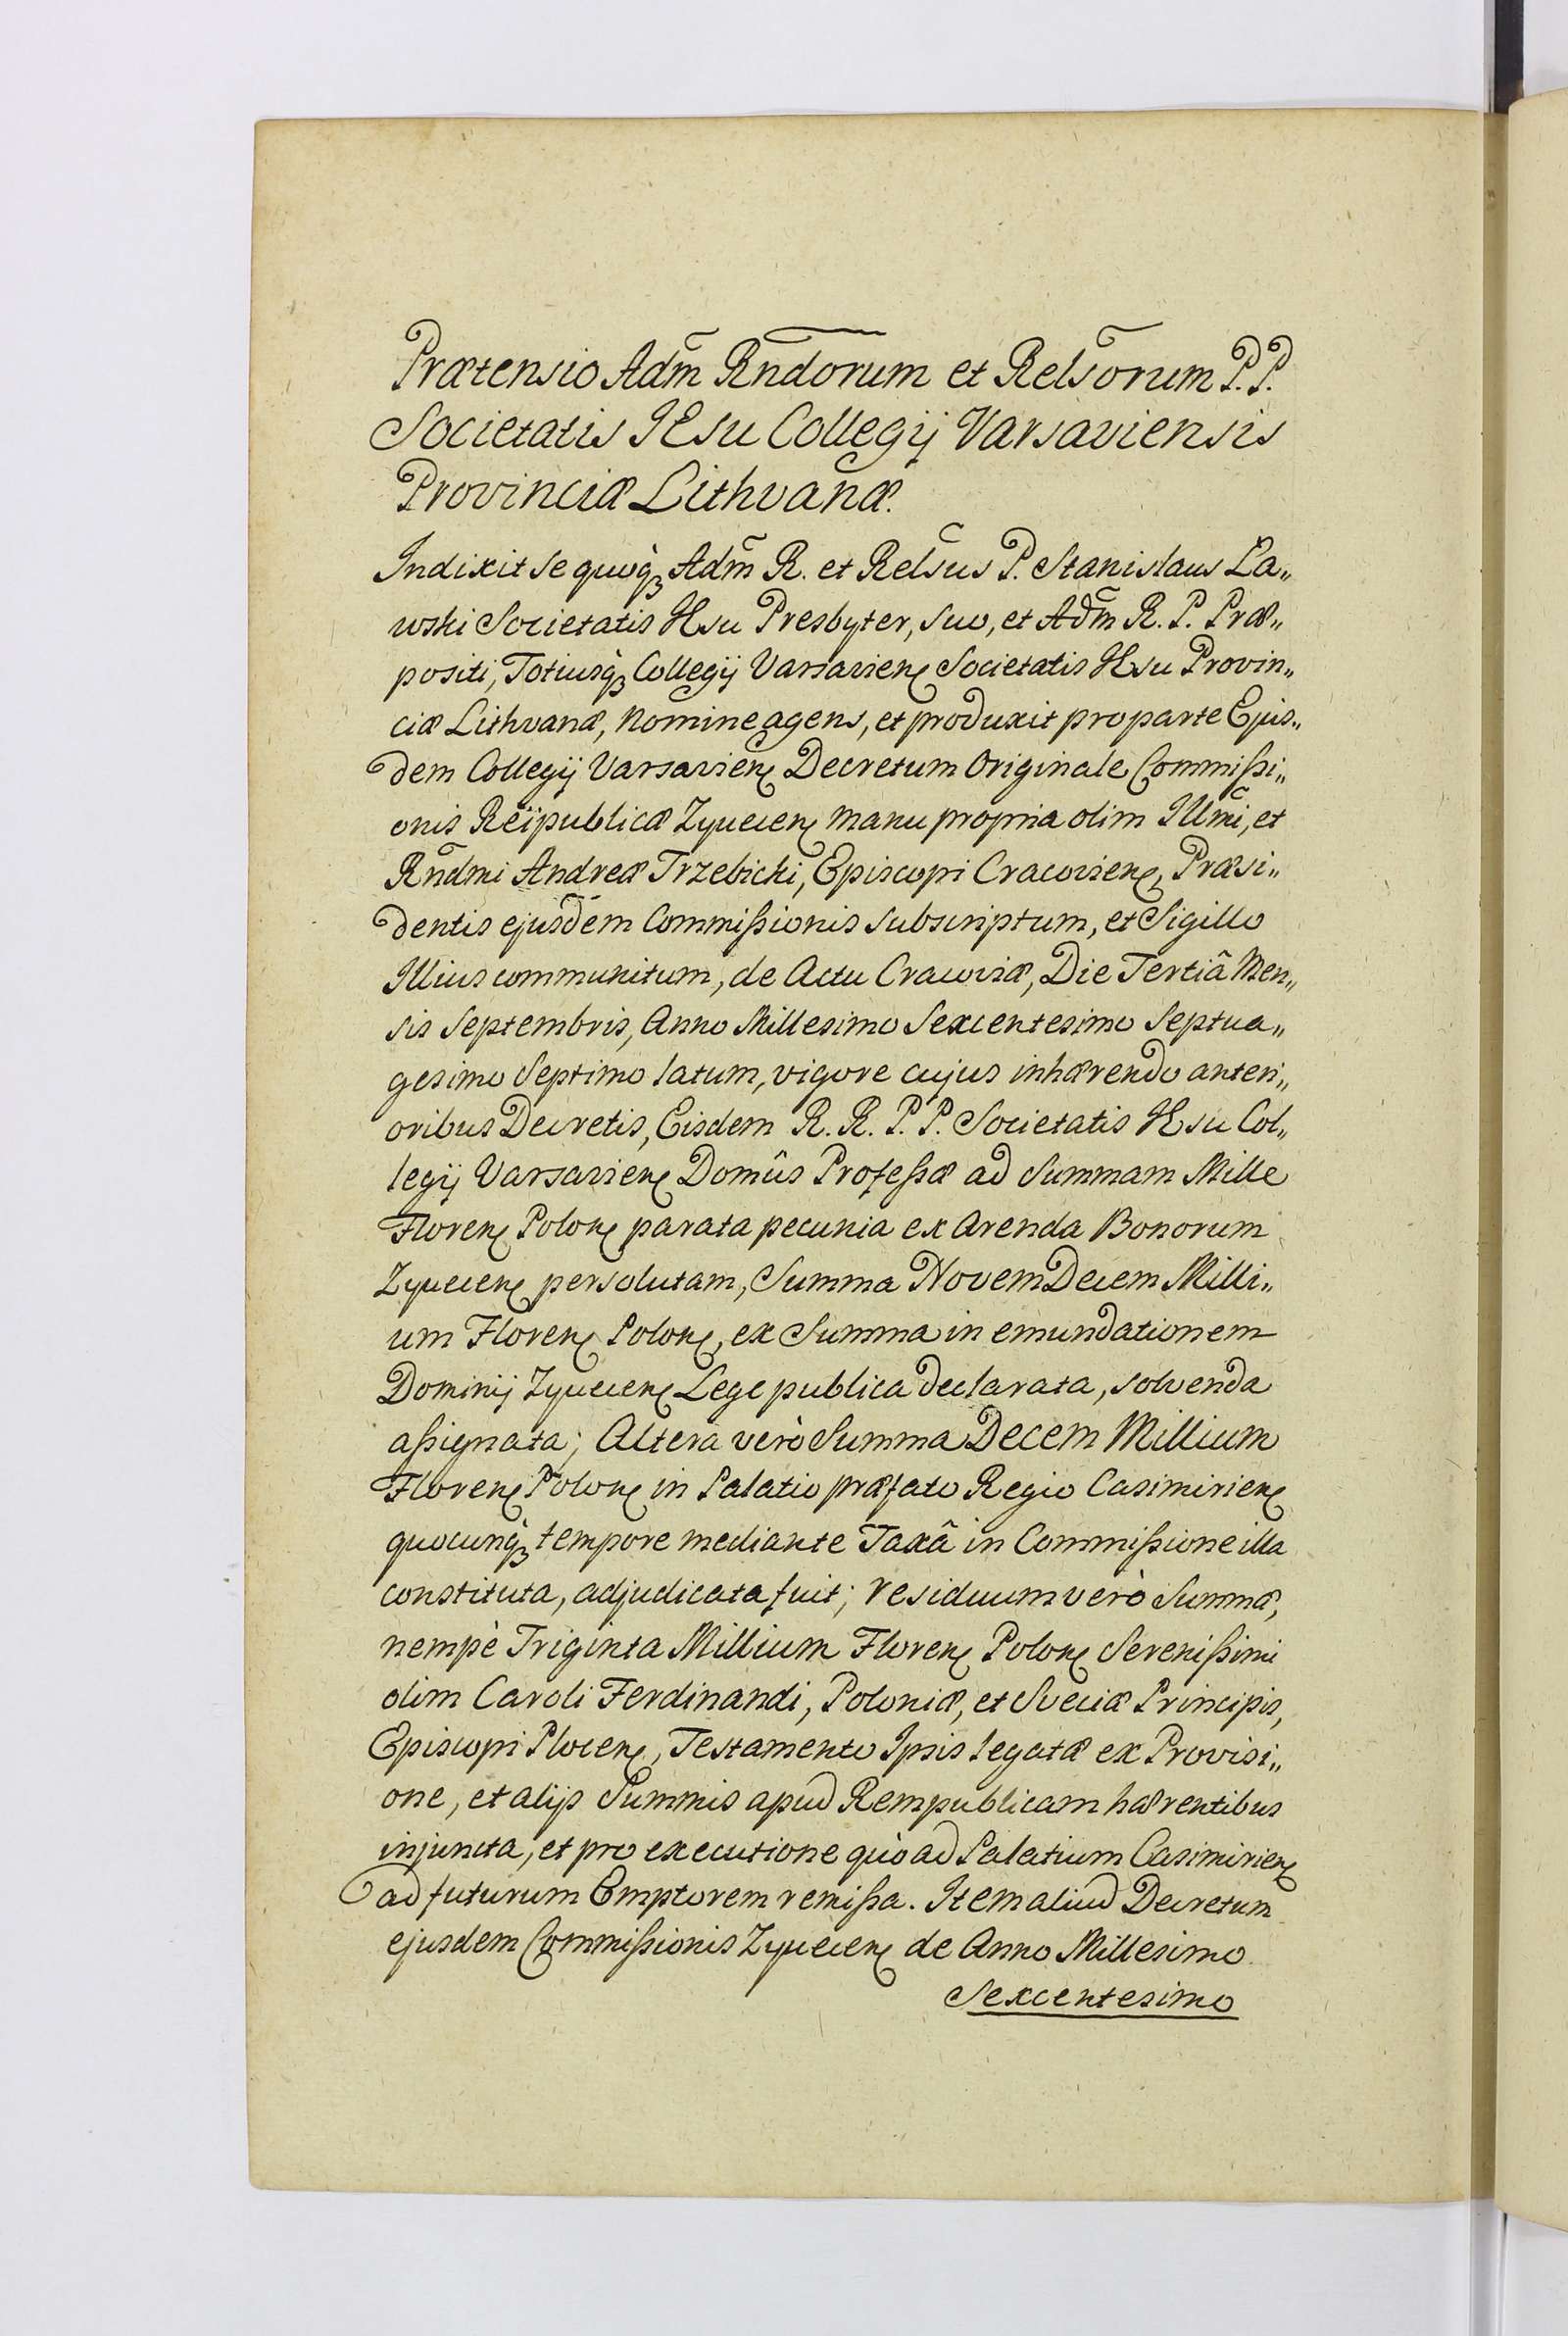 Prætensio Adm̃ Rndõrum et Relsõrum P.P.
Societatis IEsu Collegij Varsaviensis
Provinciæ Lithvanæ.
Indixit se quoq̀ꝫ Adm̃ R. et Relsũs P. Stanislaus La„
wski Societatis IEsu Presbyter, suo, et Adm̃ R. P. Præ„
positi, Totiusq̀ꝫ Collegij Varsavien̨ Societatis IEsu Provin„
ciæ Lithvanæ, Nomine agens, et produxit pro parte Ejus„
dem Collegij Varsavien̨ Decretum Originale Commißi„
onis Reipublicæ Zyvecien̨ manu propria olim Illmĩ, et
Rñdmi Andreæ Trzebicki, Episcopi Cracovien̨, Præsi„
dentis ejusdem Commißionis subscriptum, et Sigillo
Illius communitum, de Actu Cracoviæ, Die Tertiâ Men„
sis Septembris, Anno Millesimo Sexcentesimo Septua„
gesimo Septimo latum, vigore cujus inhærendo anteri„
oribus Decretis, Eisdem R. R. P. P. Societatis IEsu Col„
legij Varsavien̨ Domûs Profeßæ ad Summam Mille
Floren̨ Polon̨ parata pecunia ex Arenda Bonorum
Zyvecien̨ persolutam, Summa Novem Decem Milli„
um Floren̨ Polon̨, ex Summa in emundationem
Dominij Zyvecien̨ Lege publica declarata, solvenda
aßignata; Altera verò Summa Decem Millium
Floren̨ Polon̨ in Palatio præfato Regio Casimirien̨
quocunq̀ꝫ tempore mediante Taxâ in Commißione illa
constituta, adjudicata fuit; residuum verò Summæ,
nempè Triginta Millium Floren̨ Polon̨ Serenißimi
olim Caroli Ferdinandi, Poloniæ, et Sveciæ Principis,
Episcopi Plocen̨, Testamento Ipsis legatæ ex Provisi„
one, et alijs Summis apud Rempublicam hærentibus
injuncta, et pro executione quò ad Palatium Casimirien̨
ad futurum Emptorem remißa. Item aliud Decretum
ejusdem Commißionis Zyvecien̨ de Anno Millesimo
Sexcentesimo